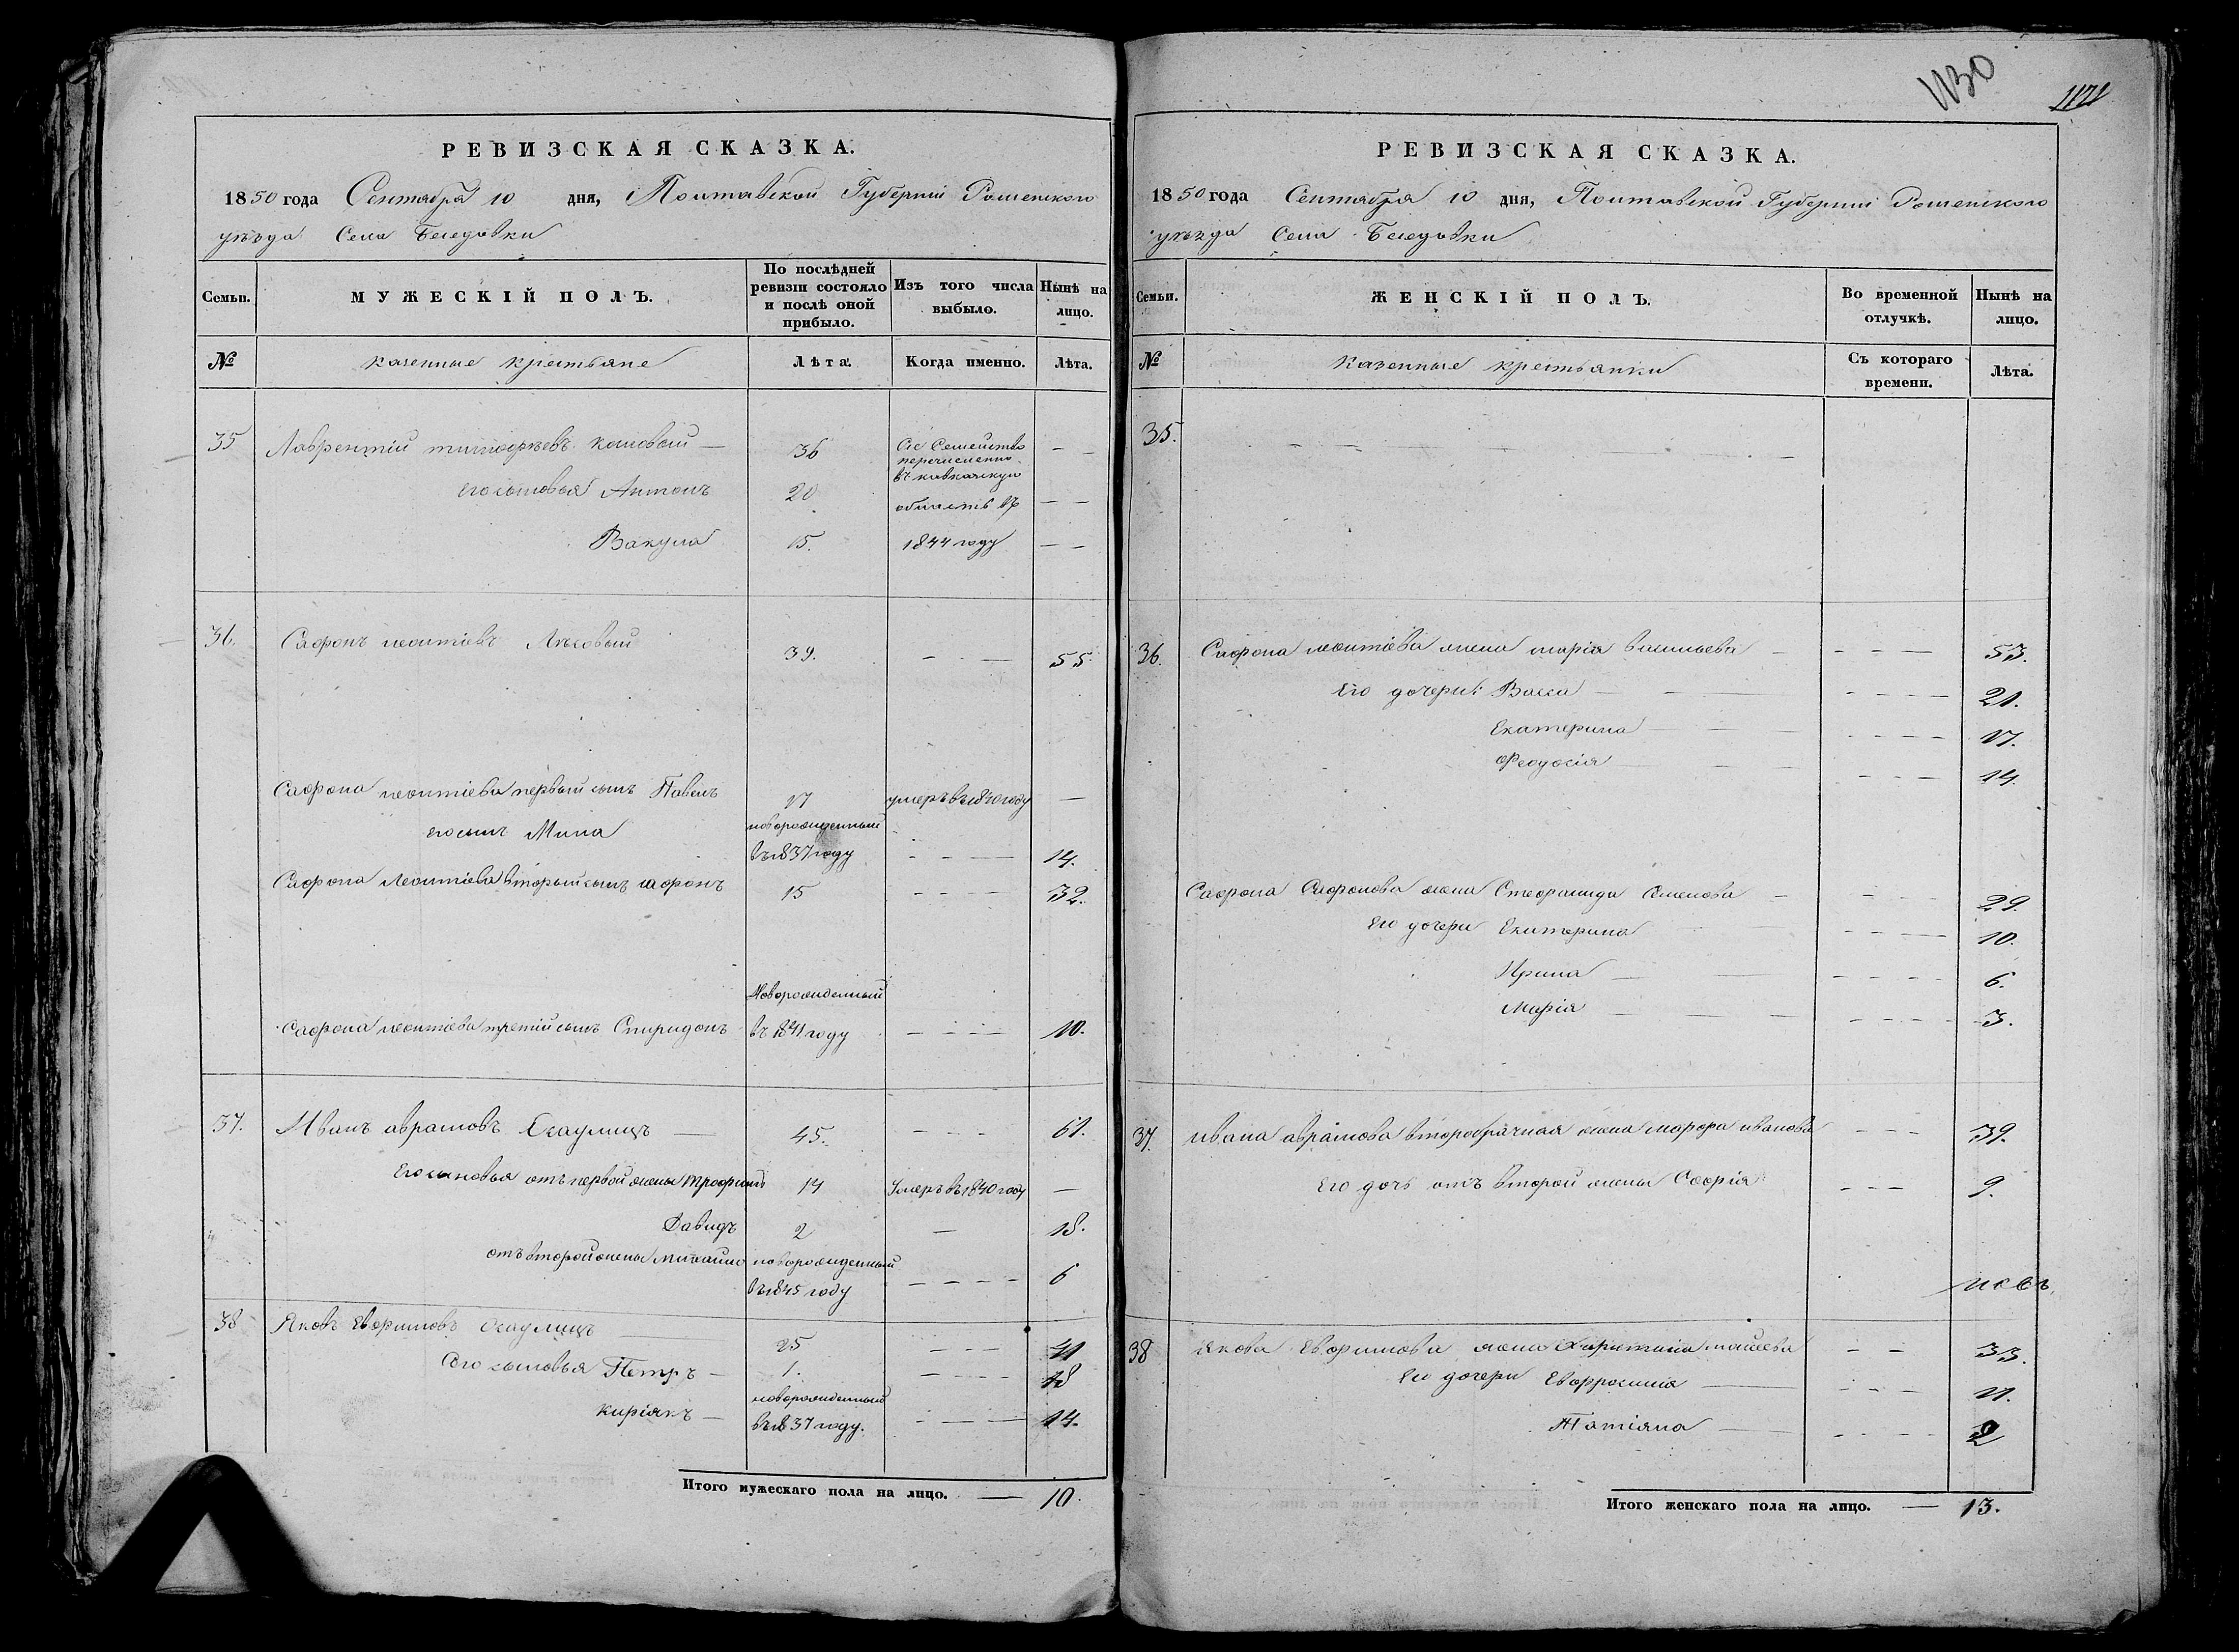 1130
РЕВИЗСКАЯ СКАЗКА.
1850 года Сентября 10 дня, Полтавской Губерніи Роменского
уѣзда Села Беседовки
Семьи. МУЖЕСКІЙ ПОЛЪ. По послѣдней ревизіи состояло и послѣ оной прибыло. Изъ того числа выбыло. Нынѣ на лицо.
№ казенные крестьяне Лѣта. Когда именно. Лѣта.
35 Лаврентій тимофѣевъ 36 Сіе Семейство — —
перечисленно
въ кавказкую
его сыновья Антонъ 20 область въ — —
Вакула 15. 1844 году — —
36. Сафонъ леонтіевъ Лѣсовый 39. - - — 55
Сафона леонтіева первый сынъ Павелъ 17 умеръ въ 1840 году —
его сынъ Мина новорожденный
въ 1837 году - - — 14.
Сафона Леонтіева вторый сынъ сафонъ 15 - - - - 32.
Новорожденный
Сафона леонтіева третій сынъ Спиридонъ въ 1841 году - - - - 10.
37. Иванъ аврамовъ Есаулицъ — 45. - - - 61.
Его сыновья отъ первой жены Трофимъ 14 Умеръ въ 1840 году —
Давидъ 2 — 18.
отъ второй жены михаило новорожденный
въ 1845 году - - - - 6
38 Яковъ Евфимовъ есаулицъ 25 - - - 41
Его сыновья Петръ — 1. - - - - 18
новорожденный
киріякъ — въ 1837 году. - - — 14.
Итого мужескаго пола на лицо. — 10.
РЕВИЗСКАЯ СКАЗКА.
1850 года Сентября 10 дня, Полтавской Губерніи Роменского
уѣзда Села Беседовки
Семьи. ЖЕНСКІЙ ПОЛЪ. Во временной отлучкѣ. Нынѣ на лицо.
№ Казенные крестьянки Съ котораго времени. Лѣта.
35. - - — — —
36. Сафона леонтіева жена марія васильева — - - — 53.
Его дочери: Васса — - - - - — 21.
Екатерина — - - - - 17.
Феодосія — - - - - 14.
Сафона Сафонова жена Стефанида Семенова — - - - 29.
Его дочери Екатерина - - - — 10.
Ирина — - - - - 6.
Марія — - - - - 3.
37. ивана аврамова второбрачная жена марфа иванова - - - 39.
Его дочь отъ второй жены Софія - - - 9.
38 Якова Евфимова жена Харитина - - 33.
Его дочери Евфросинія — - - - 11.
Татіяна — - - - - 2
Итого женскаго пола на лицо. — 13.